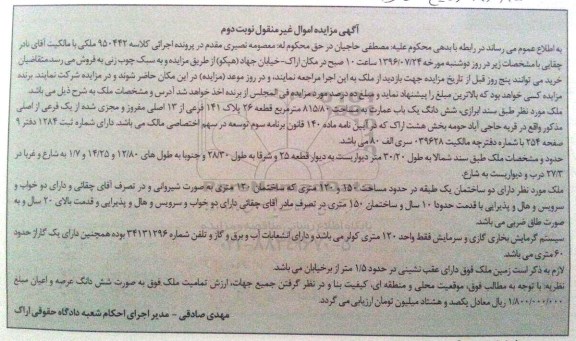 آگهی مزایده اموال غیر منقول نوبت دوم
به اطلاع عموم می رساند در رابطه با بدهی محکوم علیه: مصطفی حاجیان در حق محکوم له: معصومه نصیری مقدم در پرونده اجرائی کلاسه ۹۵۰۴۴۲ ملکی با مالکیت آقای نادر
چقایی با مشخصات زیر در روز دوشنبه مورخه ۱۳۹۶/۰۷/۲۴ ساعت ۱۰ صبح در مکان اراک- خیابان جهاد (هپکو) از طریق مزایده و به سبک چوب زنی به فروش می رسد متقاضیان
خرید می توانند پنج روز قبل از تاریخ مزایده جهت بازدید از ملک به این اجرا مراجعه نمایند، و در روز موعد (مزایده) در این مکان حاضر شوند و در مزایده شرکت نمایند. برنده
مزایده کسی خواهد بود که بالاترین مبلغ را پیشنهاد نماید و مبلغ ده درصد مورد مزایده فی المجلس از برنده اخذ خواهد شد آدرس و مشخصات ملک به شرح ذیل می باشد.
ملک مورد نظر طبق سند ابرازی، شش دانگ یک باب عمارت به مساحت ۸۱۵/۸۰ مترمربع قطعه ۲۶ پلاک ۱۴۱ فرعی از ۱۳ اصلی مفروز و مجزی شده از یک فرعی از اصلی
مذکور واقع در قریه حاجی آباد حومه بخش هشت اراک که در آیین نامه ماده ۱۴۰ قانون برنامه سوم توسعه در سهم اختصاصی مالک می باشد. دارای شماره ثبت ۱۲۸۴ دفتر ۹
صفحه ۲۵۴ با شماره دفترچه مالکیت ۰۳۹۶۲۸ سری الف ۸۰ می باشد.
حدود و مشخصات ملک طبق سند شمالا به طول ۳۰/۲۰ متر دیواریست به دیوار قطعه ۲۵ و شرقا به طول ۲۸/۳۰ و جنوبا به طول های ۱۲/۸۰ و ۱۴/۲۵ و ۱/۷ به شارع و غربا در
۲۷/۳ درب و دیواریست به شارع.
ملک مورد نظر دارای دو ساختمان یک طبقه در حدود مساحت ۱۵۰ و ۱۲۰ متری که ساختمان ۱۲۰ متری به صورت شیروانی و در تصرف آقای چقائی و دارای دو خواب و
سرویس و هال و پذیرایی با قدمت حدودا ۱۰ سال و ساختمان ۱۵۰ متری در تصرف مادر آقای چقائی دارای دو خواب و سرویس و هال و پذیرایی و قدمت بالای ۲۰ سال و به
صورت طاق ضربی می باشد.
سیستم گرمایش بخاری گازی و سرمایش فقط واحد ۱۲۰ متری کولر می باشد و دارای انشعابات آب و برق و گاز و تلفن شماره ۳۴۱۳۱۲۹۶ بوده همچنین دارای یک گاراژ حدود
۶۰ متری می باشد.
لازم به ذکر است زمین ملک فوق دارای عقب نشینی در حدود ۱/۵ متر از بر خیابان می باشد.
نظریه: با توجه به مطالب فوق، موقعیت محلی و منطقه ای، کیفیت بنا و در نظر گرفتن جمیع جهات، ارزش تمامیت ملک فوق به صورت شش دانگ عرصه و اعیان مبلغ
۱/۸۰۰/۰۰۰/۰۰۰ ریال معادل یکصد و هشتاد میلیون تومان ارزیابی می گردد.
مهدی صادقی - مدیر اجرای احکام شعبه دادگاه حقوقی اراک